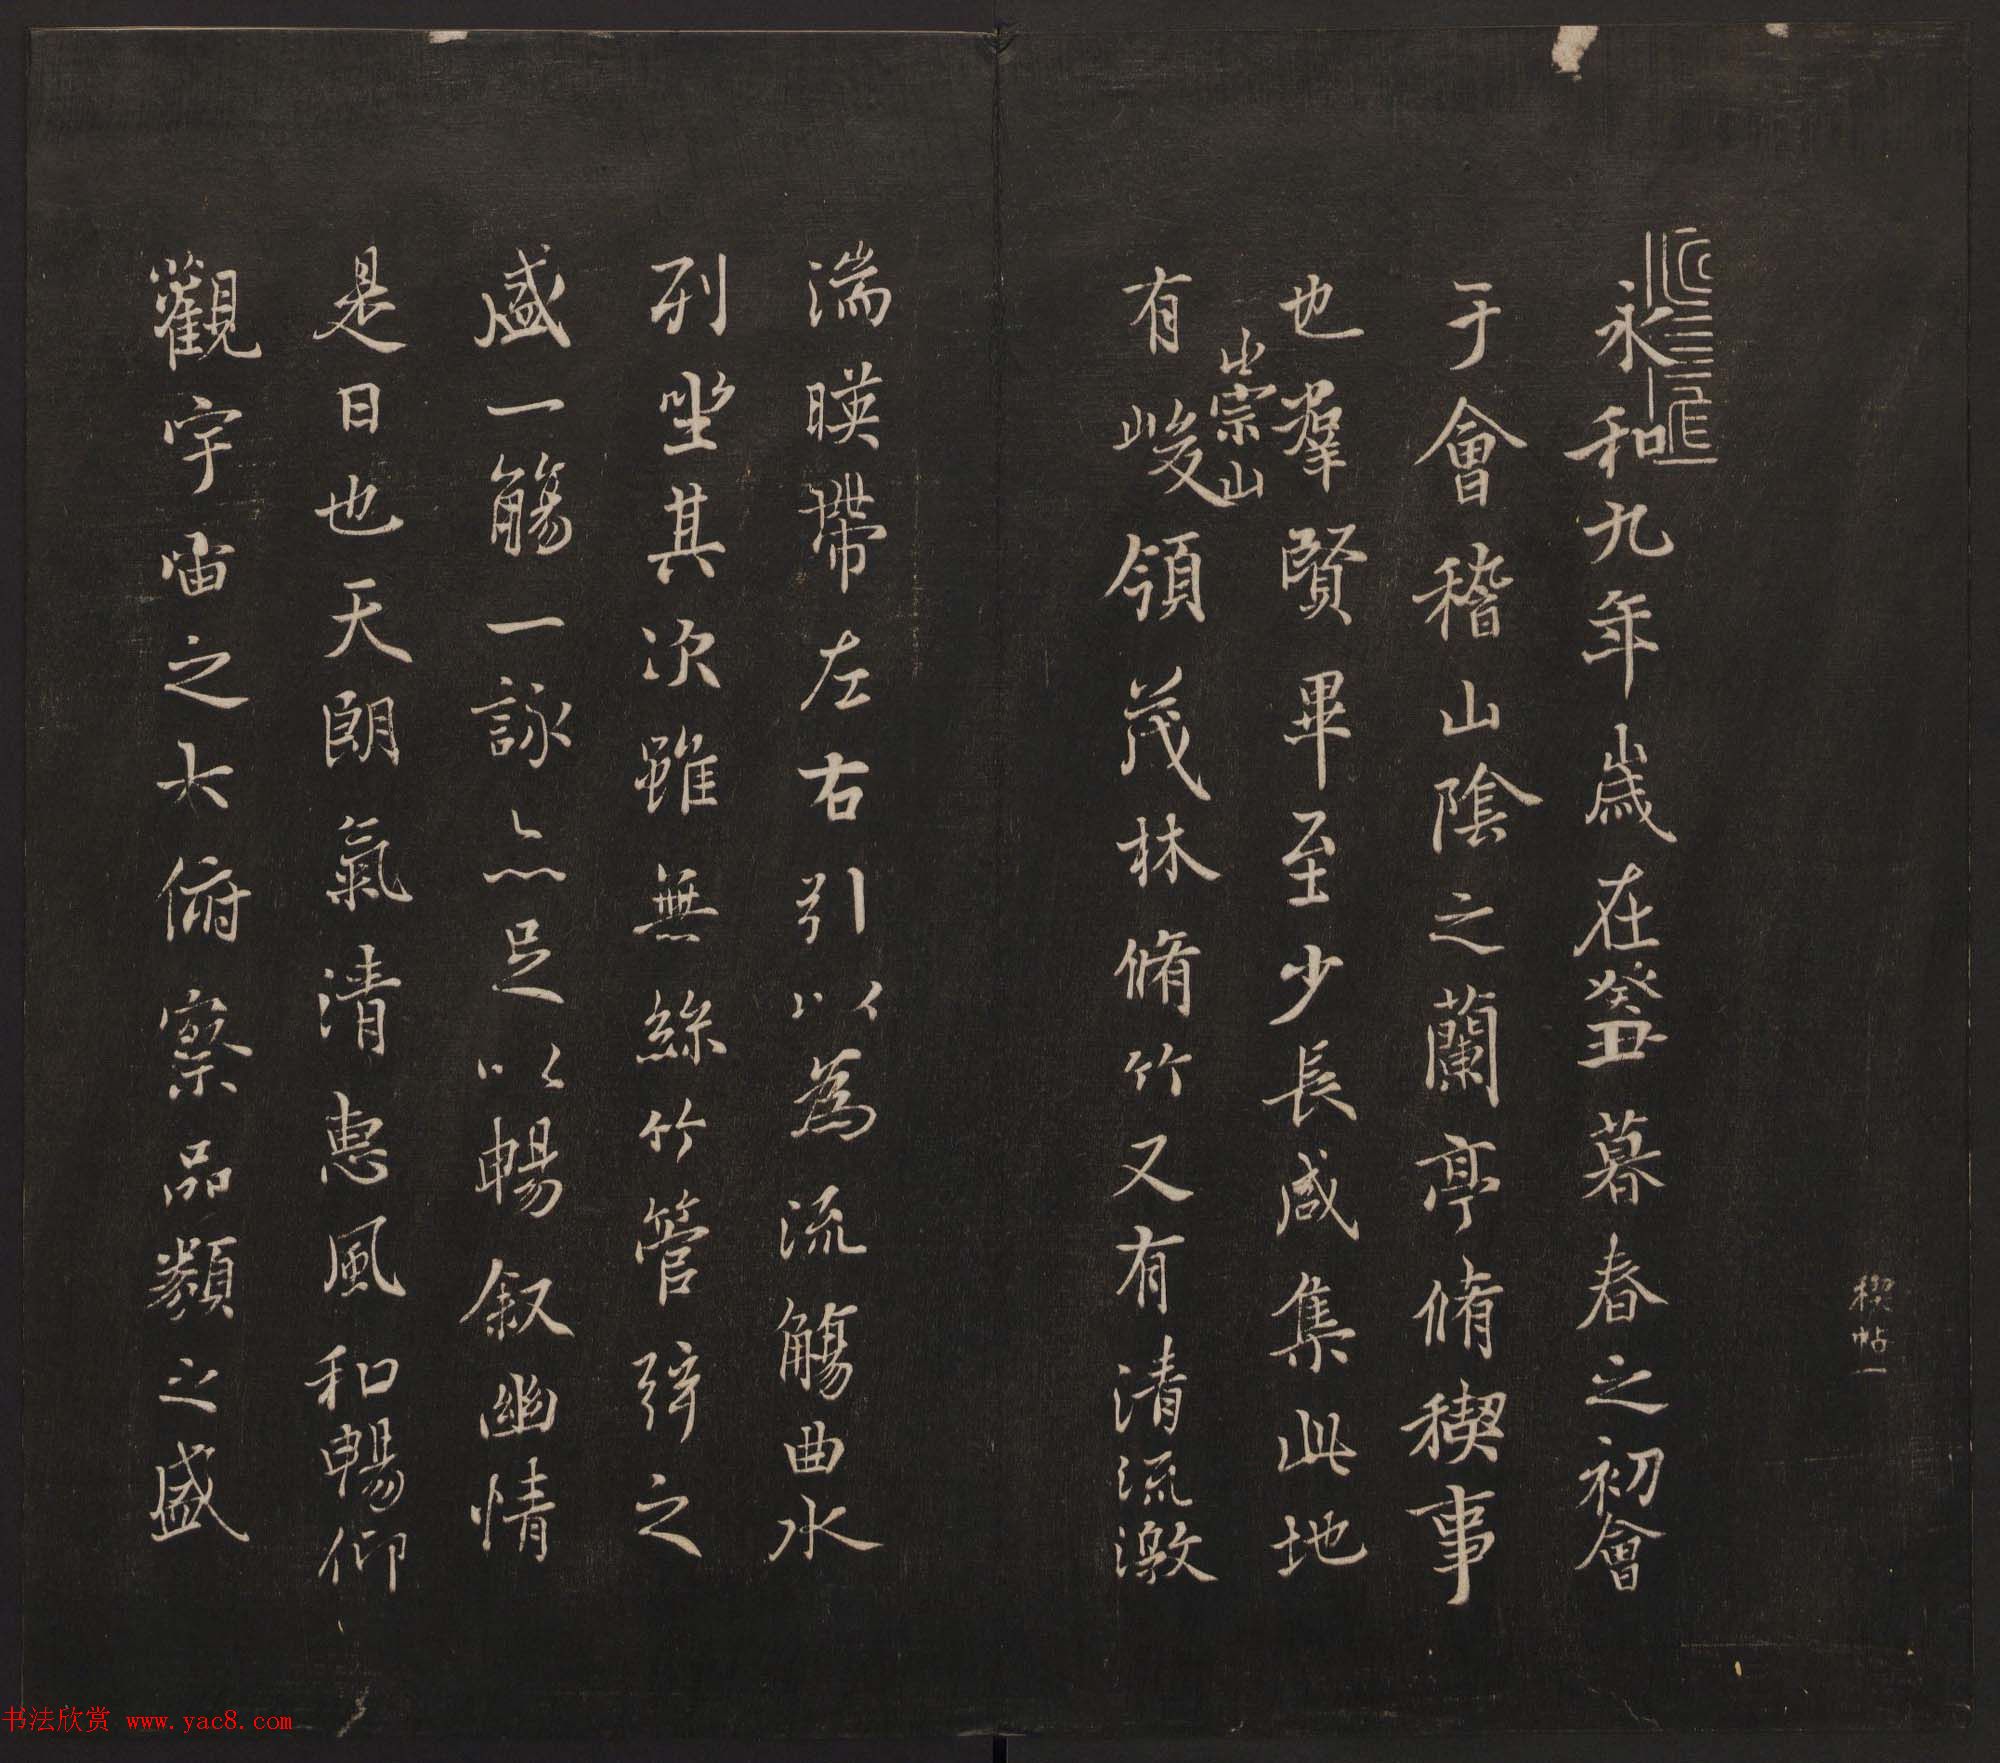 禊帖一
永和九年歲在癸丑暮春之初會
于會稽山陰之蘭亭脩稧事
也羣賢畢至少長咸集此地
崇山
有峻領茂林脩竹又有清流激
湍暎帶左右引以為流觴曲水
列坐其次雖無絲竹管弦之
盛一觴一詠亦足以暢叙幽情
是日也天朗氣清惠風和暢仰
觀宇宙之大俯察品類之盛
书法欣赏 www.yac8.com